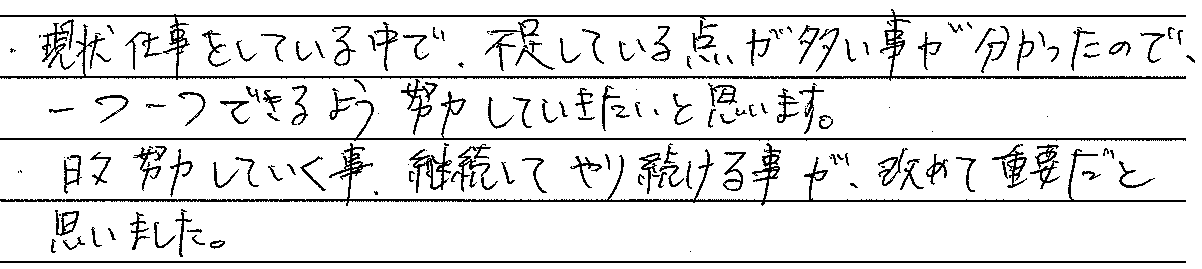 ・現状仕事をしている中で、不足している点が多い事が分かったので、
一つ一つできるよう努力していきたいと思います。
・日々努力していく事、継続してやり続ける事が、改めて重要だと
思いました。